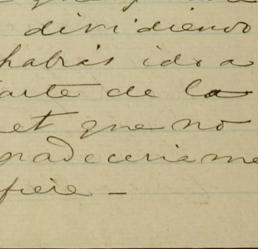 dividiendo
habrás ido a
arte de la
et que no
radeceria me
fiere —